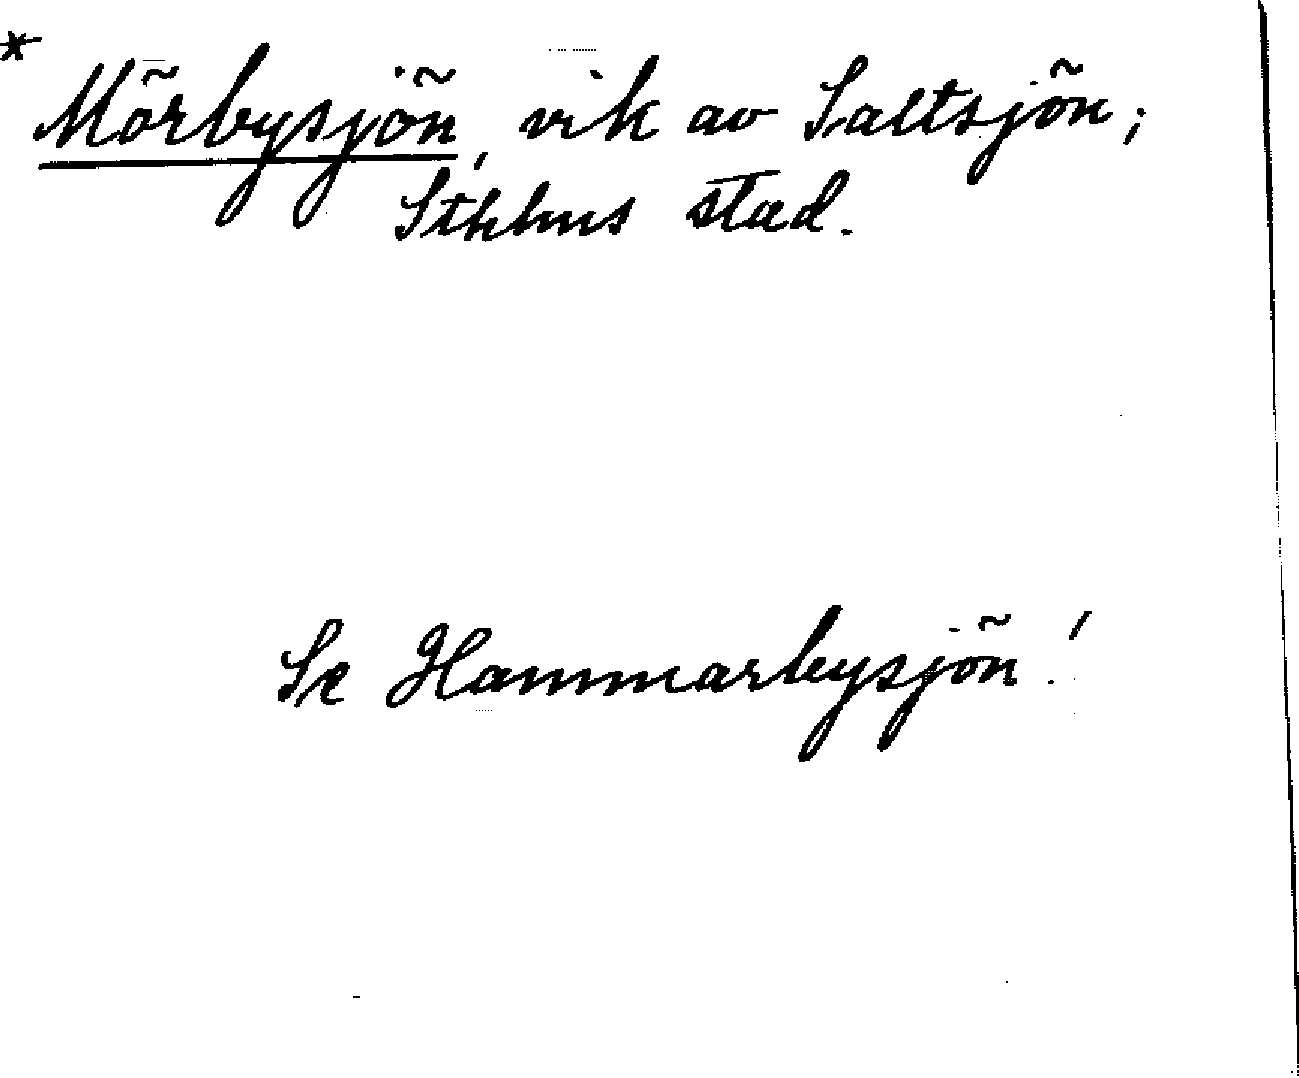 * Mörbysjön, vik av Saltsjön;
Sthlms stad.
Se Hammarbysjön!